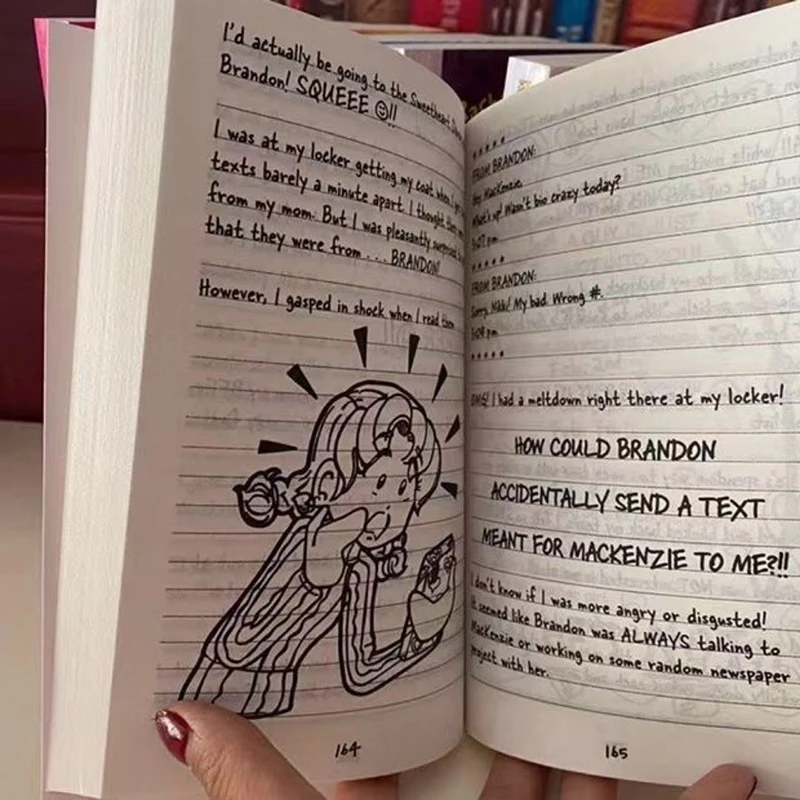 I'd actually be going to the Sweetheart
Brandon! SQUEEE ☺!!
I was at my locker getting my coat when I
texts barely a minute apart. I thought
from my mom. But I was pleasantly surprised
that they were from . . . BRANDON!
However, I gasped in shock when I read them
164
*****
FROM BRANDON:
Hey MacKenzie,
What's up! Wasn't bio crazy today?
3:07 pm
*****
FROM BRANDON:
Sorry, Nikki! My bad. Wrong #.
3:08 pm
*****
OMG! I had a meltdown right there at my locker!
HOW COULD BRANDON
ACCIDENTALLY SEND A TEXT
MEANT FOR MACKENZIE TO ME?!!
I don't know if I was more angry or disgusted!
It seemed like Brandon was ALWAYS talking to
MacKenzie or working on some random newspaper
project with her.
165